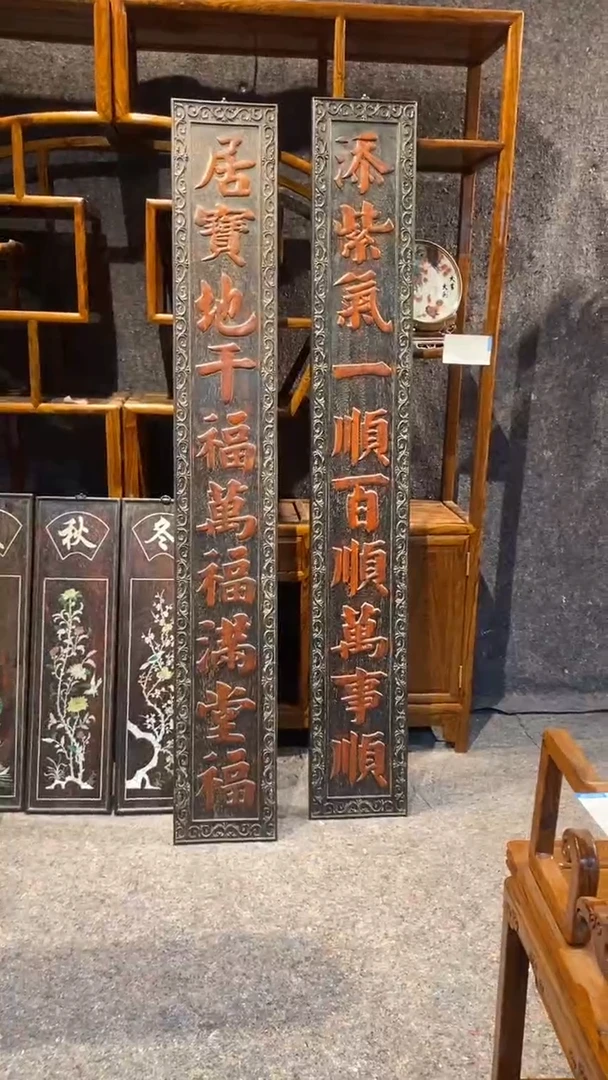 添紫氣一順百順萬事順
居寶地千福萬福滿堂福
冬
秋